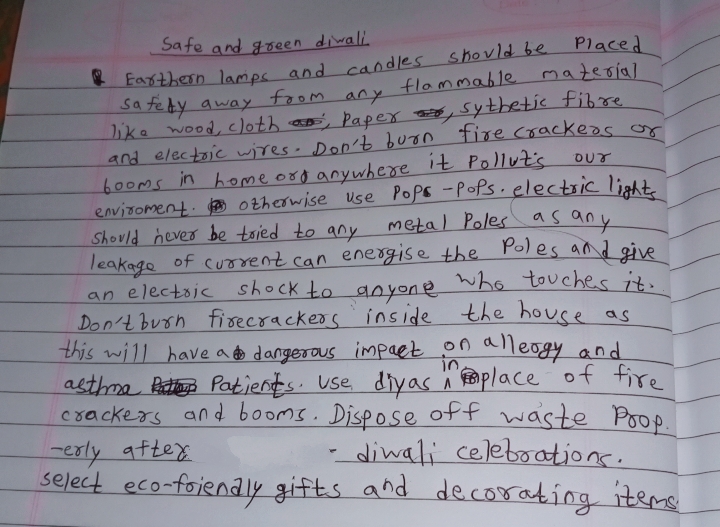 Safe and green diwali
Earthern lamps and candles should be placed
safely away from any flammable material
like wood, cloth, paper, sythetic fibre
and electric wires. Don't burn fire crackers or
booms in home or anywhere it pollut's our
enviroment. otherwise use Pops-Pops. electric lights
should never be tried to any metal Poles as any
leakage of current can energise the Poles and give
an electric shock to anyone who touches it.
Don't burn firecrackers inside the house as
this will have a dangerous impact on allergy and
asthma Patients. Use diyas in place of fire
crackers and booms. Dispose off waste Prop.
-erly after - diwali celebrations.
select eco-friendly gifts and decorating items